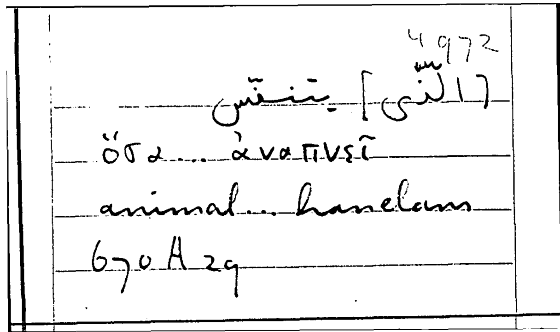 4972
[التى] يتنفّس
ὅσα... ἀναπνεῖ
animal... hanelans
670 A 29